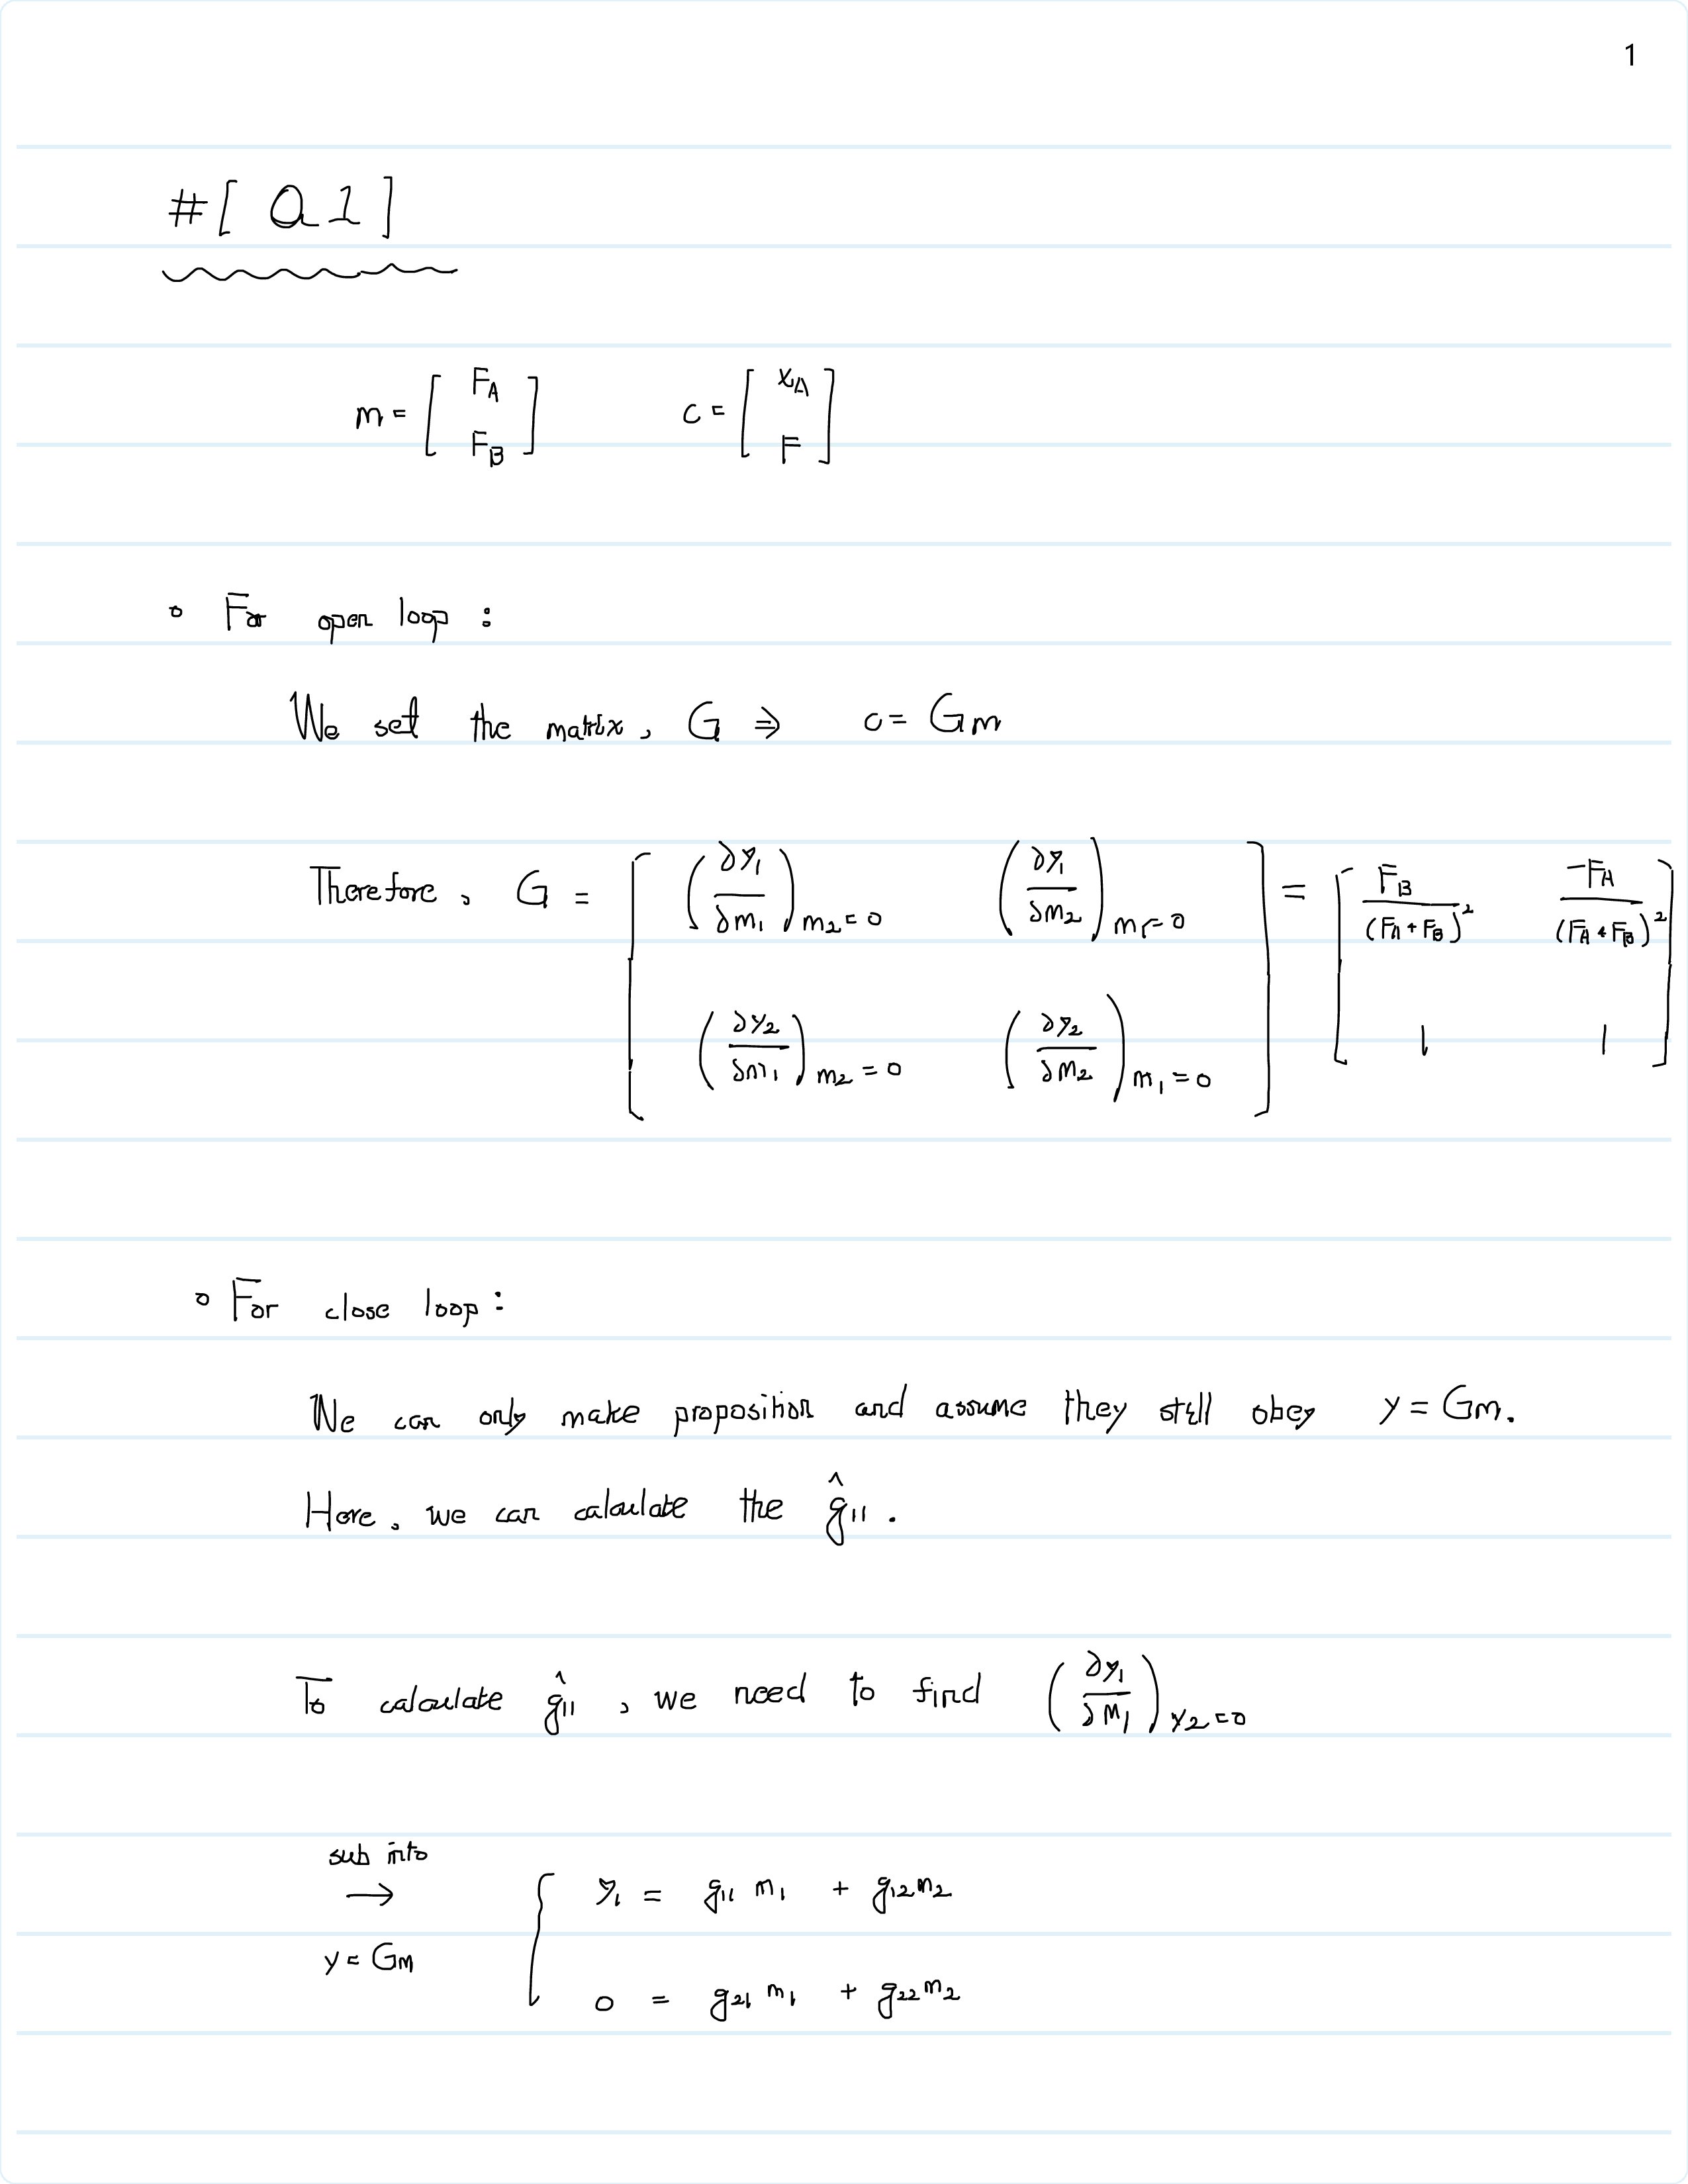 1
#[ Q1 ]
m = [ F_A ; F_B ]    c = [ x_A ; F ]
◦ For open loop :
We set the matrix, G ⇒ c = Gm
Therefore, G = [ (∂y₁/∂m₁)_{m₂=0}  (∂y₁/∂m₂)_{m₁=0} ; (∂y₂/∂m₁)_{m₂=0}  (∂y₂/∂m₂)_{m₁=0} ] = [ F_B/(F_A+F_B)²  -F_A/(F_A+F_B)² ; 1  1 ]
◦ For close loop :
We can only make proposition and assume they still obey y = Gm.
Here, we can calculate the ĝ₁₁.
To calculate ĝ₁₁, we need to find (∂y₁/∂m₁)_{y₂=0}
sub into
→ { y₁ = g₁₁ m₁ + g₁₂ m₂
y = Gm
0 = g₂₁ m₁ + g₂₂ m₂